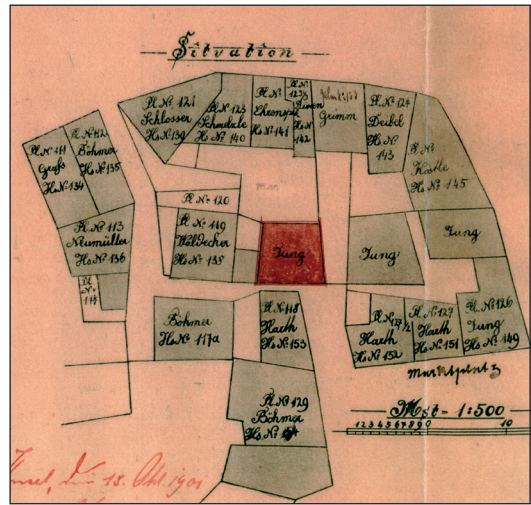 Situation
Pl. Nº 121
Schlosser
Hs Nº 139
Pl. Nº 123
Schmelzle
Hs Nº 140
Pl. Nº
Ehrensp
Hs Nº 141
Pl. Nº
123½
Hs Nº
142
Grimm
Pl. Nº 124
Deibel
Hs Nº
143
Pl. Nº
Köstle
Hs Nº 145
Pl. Nº 111
Grafs
Hs Nº 134
Pl. Nº 112
Böhmer
Hs Nº 135
Pl. Nº 113
Neumüller
Hs. Nº 136
Pl.
Nº
Pl. Nº 120
Pl. Nº 119
Hs Nº 135
Jung
Jung
Jung
Böhmer
Hs Nº 117a
Pl. Nº 118
Harth
Hs Nº 153
Harth
Hs Nº 152
Pl. Nº 127
Harth
Hs Nº 151
Pl. Nº 126
Jung
Hs. Nº 149
Marktplatz
Pl. Nº 129
Böhmer
Hs. Nº
Mst - 1:500
1 2 3 4 5 6 7 8 9 0 10
den 18. Okt. 1901